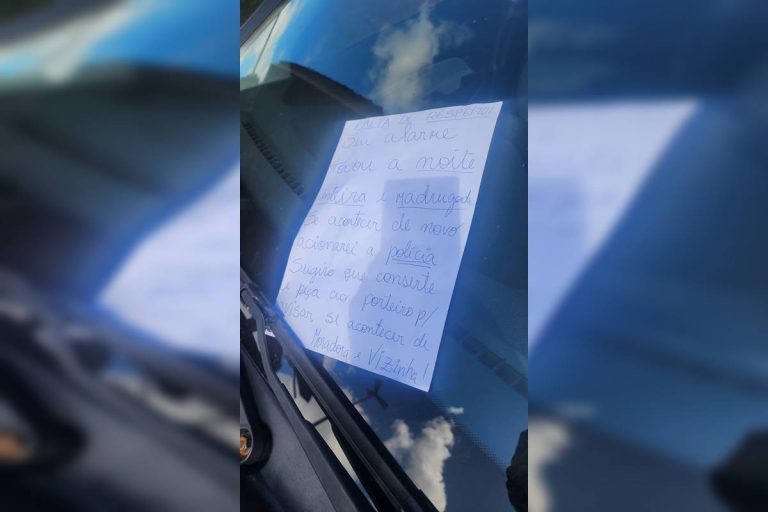 FALTA DE RESPEITO!
Seu alarme
tocou a noite
inteira e madrugada
Se acontecer de novo
acionarei a polícia
Sugiro que conserte
e peça ao porteiro p/
avisar se acontecer de
Moradora e Vizinha!